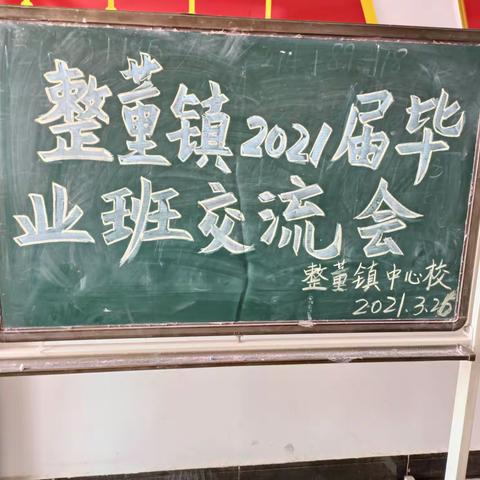 整董镇2021届毕
业班交流会
整董镇中心校
2021.3.26